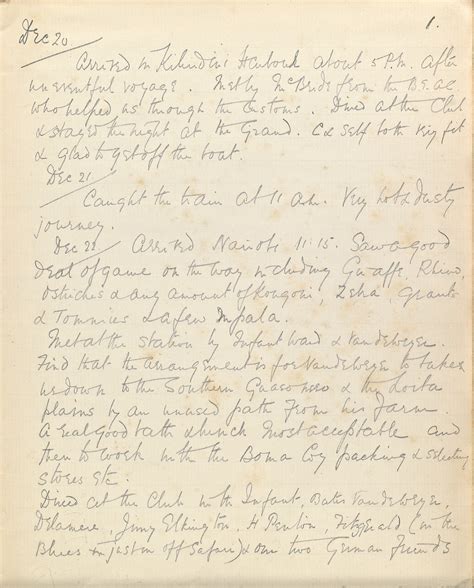 1.
Dec 20
Arrived in Kilindini Harbour about 5 P.m. after
uneventful voyage. Met by McBride from the B.E.A.C.
who helped us through the Customs. Dined at the Club
& stayed the night at the Grand. C & self both very fit
& glad to get off the boat.
Dec 21
Caught the train at 11 a.m. Very hot & dusty
journey.
Dec 22 Arrived Nairobi 11:15. Saw a good
Deal of game on the way including Giraffe, Rhino,
Ostriches & any amount of Kongoni, Zebra, Grants
& Tommies & a few Impala.
Met at the station by Infant Ward & Vandeweyer.
Find that the arrangement is for Vandeweyer to take
us down to the Southern Guaso Nyiro & the Loita
plains by an unused path from his farm.
A real Good bath & lunch most acceptable and
then to work with the Boma Coy packing & selecting
stores Etc.
Dined at the Club with Infant, Vandeweyer,
Delamere, Jimmy Elkington, H Penton, Fitzgerald (in the
Blues & just in off Safari) & one two German friends